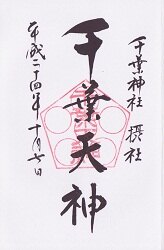 千葉神社 摂社
千葉天神
平成二十四年十月七日